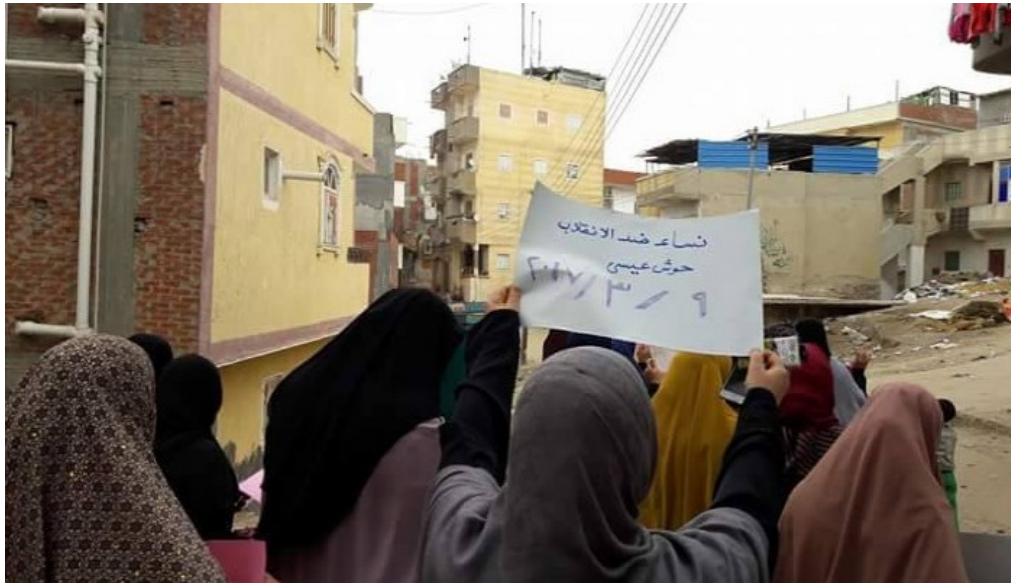 نساء ضد الانقلاب
حوش عيسى
٩ / ٣ / ٢٠١٧